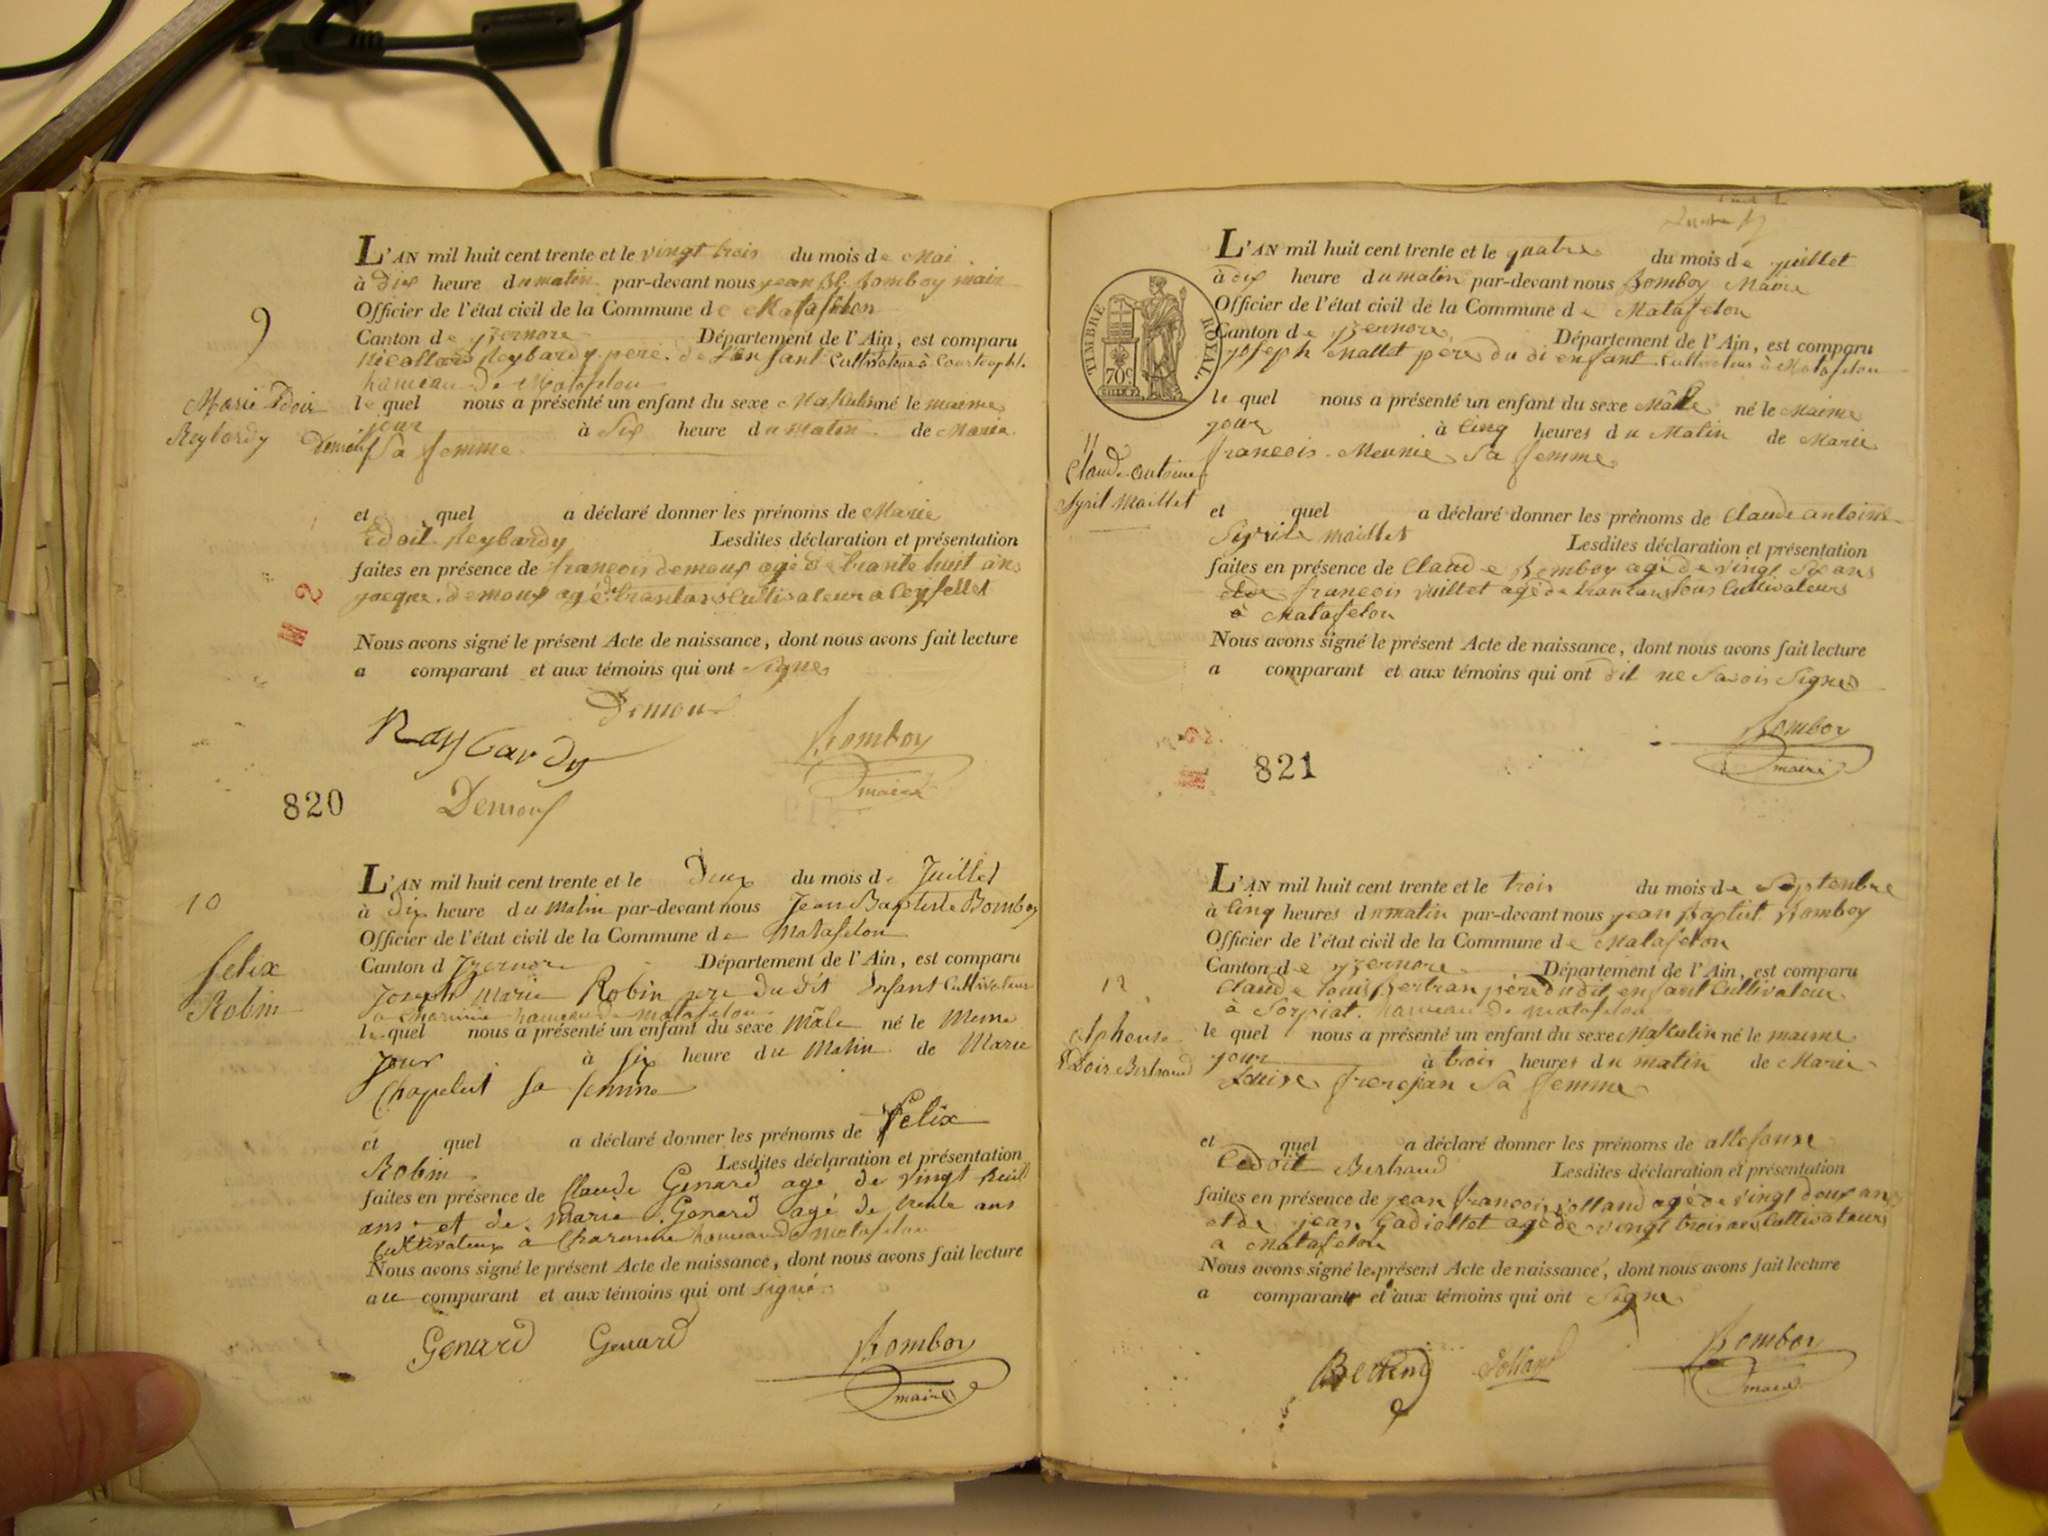 L'AN mil huit cent trente et le vingt trois du mois de Mai
à dix heure du matin par-devant nous jean Bt. Bomboy mair
Officier de l'état civil de la Commune de Matafelon
Canton de yzernore Département de l'Ain, est comparu
Reybardy pere de L'enfant Cultivateur à
hameau de Matafelon
9
Marie Edoir
Reybardy
le quel nous a présenté un enfant du sexe Maskulin né le maime
jour à Six heure du matin de Maria
Demouf Sa femme
et quel a déclaré donner les prénoms de Marie
Edoit Reybardy Lesdites déclaration et présentation
faites en présence de francois demouf agé de trante huit ans
jacque demouf agé de trantans Cultivateur a Ceyssellet
Nous avons signé le présent Acte de naissance, dont nous avons fait lecture
a comparant et aux témoins qui ont Signe
Demouf
Raybardy
Bomboy
maire
820
Demouf
L'AN mil huit cent trente et le Deux du mois de Juillet
10
à Dix heure du Matin par-devant nous Jean Baptiste Bomboy
Officier de l'état civil de la Commune de Matafelon
Felix
Robin
Canton d Yzernore Département de l'Ain, est comparu
Joseph Marie Robin pere du dit Enfant Cultivateur
a Charmine hameau de Matafelon
le quel nous a présenté un enfant du sexe Mâle né le Meme
Jour à Six heure du Matin de Marie
Chapelut Sa femme
et quel a déclaré donner les prénoms de Felix
Robin Lesdites déclaration et présentation
faites en présence de Claude Genard agé de vingt huit
ans et de Marie Genard agé de trente ans
Cultivateur a Charmine hameau de Matafelon
Nous avons signé le présent Acte de naissance, dont nous avons fait lecture
au comparant et aux témoins qui ont signé
Genard Genard Bomboy
maire
L'AN mil huit cent trente et le quatre du mois de juillet
à dix heure du matin par-devant nous Bomboy Maire
Officier de l'état civil de la Commune de Matafelon
Canton de yzernore Département de l'Ain, est comparu
joseph Mallet père du di enfant Cultivateur à Matafelon
TIMBRE ROYAL
70c
le quel nous a présenté un enfant du sexe Mâle né le Maime
jour à Cinq heures du Matin de Marie
francois Meunie Sa femme
11
Claude Antoine
Syril Maillet
et quel a déclaré donner les prénoms de Claude antoine
Syrile maillet Lesdites déclaration et présentation
faites en présence de Claude Bomboy agé de vingt Six ans
francois vuillet agé de trantans tous Cultivateurs
à Matafelon
Nous avons signé le présent Acte de naissance, dont nous avons fait lecture
a comparant et aux témoins qui ont dit ne Savoir Signer
Bomboy
maire
821
L'AN mil huit cent trente et le trois du mois de Septembre
à Cinq heures du matin par-devant nous jean Baptist Bomboy
Officier de l'état civil de la Commune de Matafelon
Canton de yzernore Département de l'Ain, est comparu
Claude Louis Bertran père du dit enfant Cultivateur
à Sorpiat hameau de matafelon
12
Alphonse
Edoir Bertrand
le quel nous a présenté un enfant du sexe Maskulin né le maime
jour à trois heures du matin de Marie
Louise frerejan Sa femme
et quel a déclaré donner les prénoms de allefonse
Edoit Bertrand Lesdites déclaration et présentation
faites en présence de jean francois volland agé de vingt doux ans
et de jean Gadiollet agé de vingt trois ans Cultivateurs
a Matafelon
Nous avons signé le présent Acte de naissance, dont nous avons fait lecture
a comparant et aux témoins qui ont Signe
Bomboy
maire